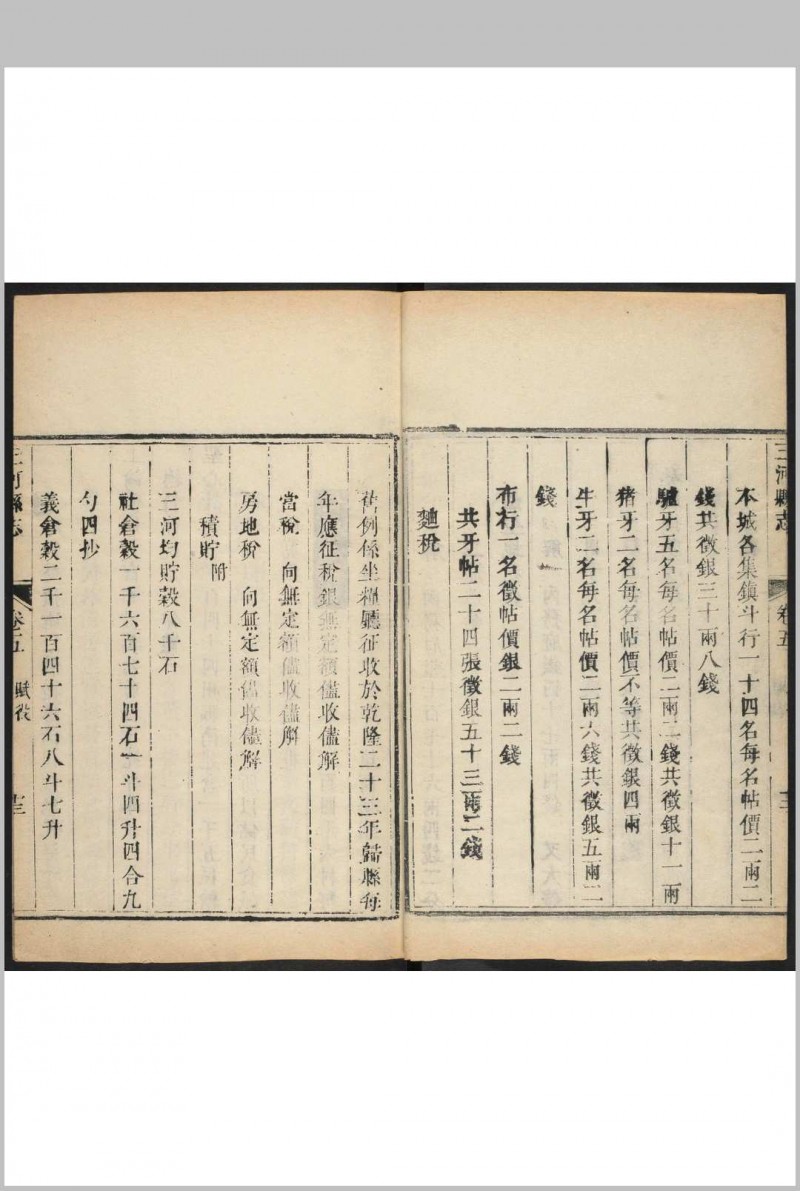 三河縣志
卷五
本城各集鎮斗行一十四名每名帖價二兩二
錢共徵銀三十兩八錢
驢牙五名每名帖價二兩二錢共徵銀十一兩
猪牙二名每名帖價不等共徵銀四兩
牛牙二名每名帖價二兩六錢共徵銀五兩二
錢
布行一名徵帖價銀二兩二錢
共牙帖二十四張徵銀五十三兩二錢
麯稅
舊例係坐糧廳征收於乾隆二十三年歸縣每
年應征稅銀無定額儘收儘解
當稅 向無定額儘收儘解
房地稅 向無定額儘收儘解
積貯附
三河均貯穀八千石
社倉穀一千六百七十四石一斗四升四合九
勺四抄
義倉穀二千一百四十六石八斗七升
三河縣志
卷五 賦役